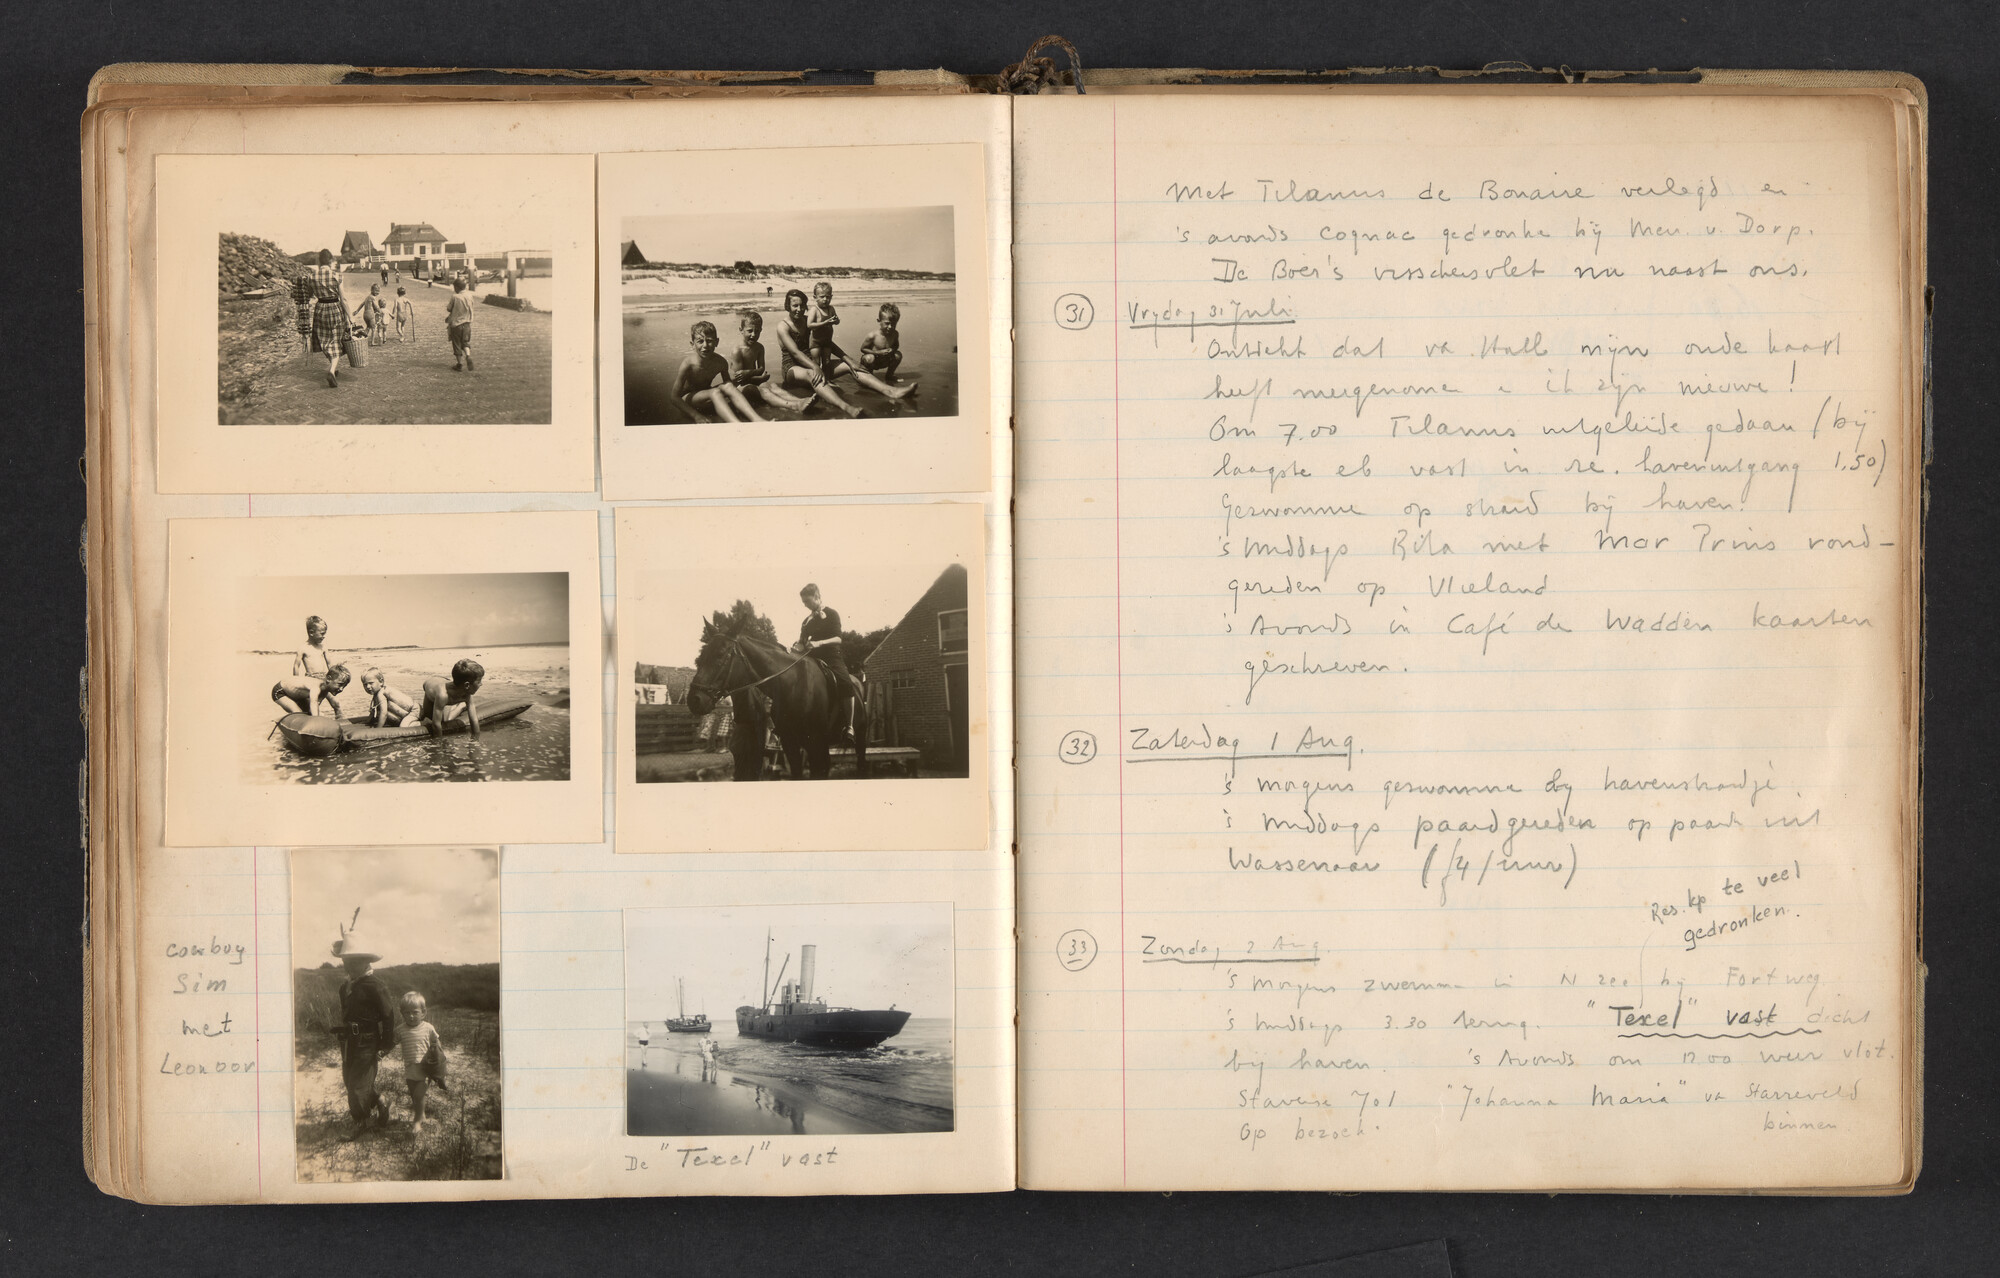 cowboy
Sim
met
Leonoor
De "Texel" vast
Met Tilanus de Bonaire verlegd en
's avonds cognac gedronke bij Men. v. Dorp.
De Boer's visschersvlet nu naast ons.
31 Vrydag 31 Juli
Ontdekt dat va Hall mijn oude kaart
heeft meegenome e ik zijn nieuwe!
Om 7.00 Tilanus uitgeleide gedaan (bij
laagste eb vast in de. havenuitgang 1,50)
Gezwomme op strand bij haven.
's Middags Bila met Mar Prins rond-
gereden op Vlieland
's Avonds in Café de Wadden kaarten
geschreven.
32 Zaterdag 1 Aug.
's morgens gezwomme by havenstrandje.
's Middags paardgereden op paard uit
Wassenaar (f4/uur)
Res. kp te veel
gedronken.
33 Zondag 2 Aug.
's Morgens zwemme in N zee bij Fortweg
's Middags 3.30 terug. "Texel" vast dicht
bij haven. 's Avonds om 12.00 weer vlot.
Staverse Jol "Johanna Maria" va Starreveld
op bezoek. binnen